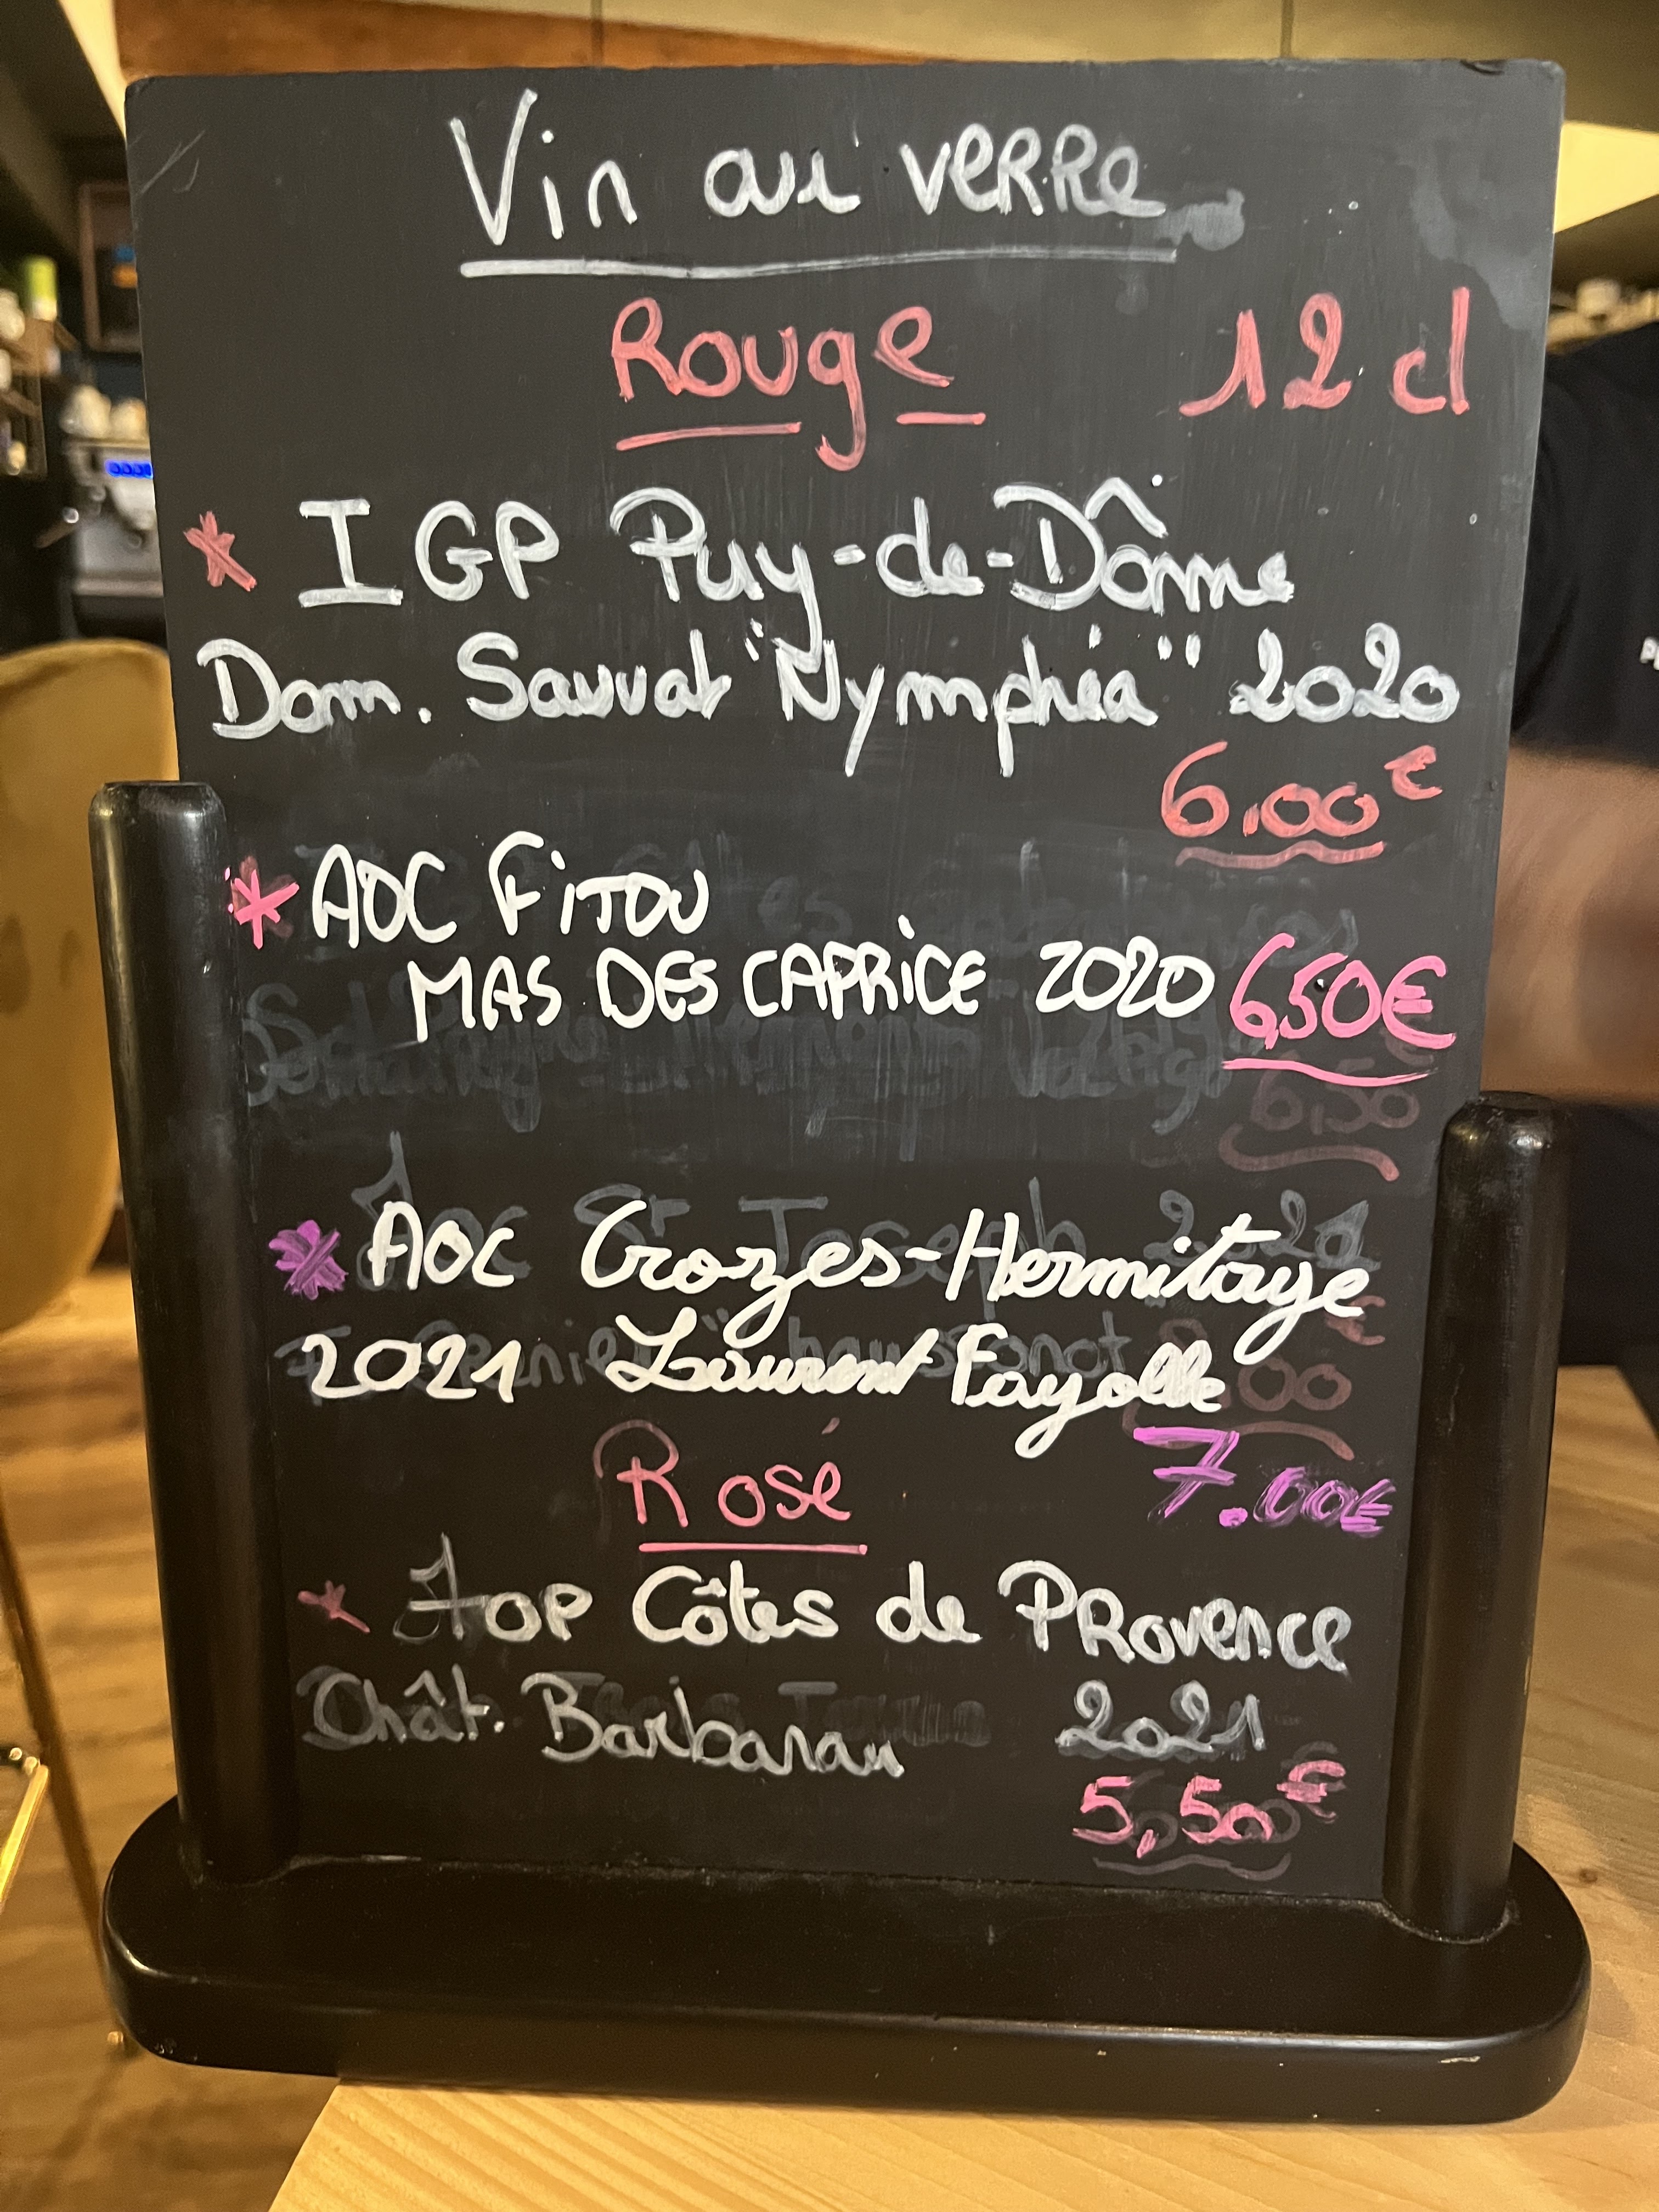 Vin au verre
Rouge 12 cl
* IGP Puy-de-Dôme
Dom. Sauvat "Nymphéa" 2020
6.00€
* AOC FiTOU
MAS DES CAPRiCE 2020 6,50€
6,50€
* AOC Crozes-Hermitage
2021 Laurent Fayolle
Rosé 7.00€
* AOP Côtes de Provence
Chât. Barbanau 2021
5,50€